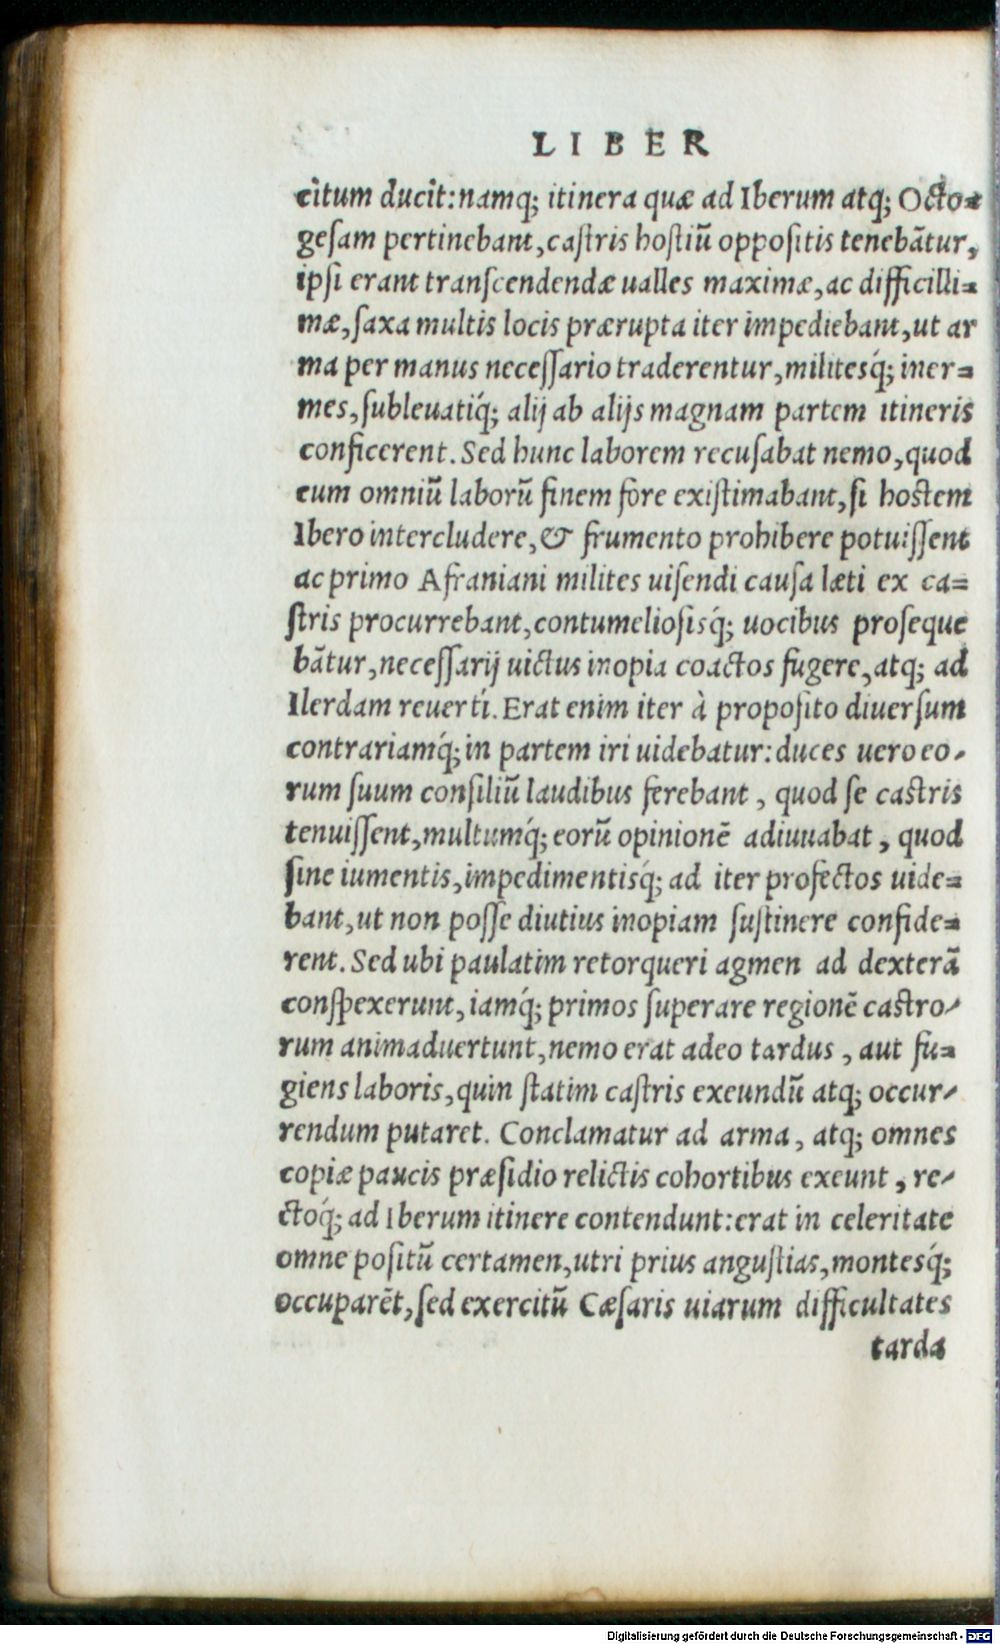 LIBER
citum ducit: namq; itinera quæ ad Iberum atq; Octo=
gesam pertinebant, castris hostiũ oppositis tenebãtur,
ipsi erant transcendendæ ualles maximæ, ac difficilli=
mæ, saxa multis locis prærupta iter impediebant, ut ar
ma per manus necessario traderentur, militesq́; iner=
mes, subleuatiq́; alij ab alijs magnam partem itineris
conficerent. Sed hunc laborem recusabat nemo, quod
eum omniũ laborũ finem fore existimabant, si hostem
Ibero intercludere, & frumento prohibere potuissent
ac primo Afraniani milites uisendi causa læti ex ca=
stris procurrebant, contumeliosisq́; uocibus proseque
bãtur, necessarij uictus inopia coactos fugere, atq; ad
Ilerdam reuerti. Erat enim iter à proposito diuersum
contrariamq́; in partem iri uidebatur: duces uero eo-
rum suum consiliũ laudibus ferebant, quod se castris
tenuissent, multumq́; eorũ opinionẽ adiuuabat, quod
sine iumentis, impedimentisq́; ad iter profectos uide=
bant, ut non posse diutius inopiam sustinere confide=
rent. Sed ubi paulatim retorqueri agmen ad dexterã
conspexerunt, iamq́; primos superare regionẽ castro-
rum animaduertunt, nemo erat adeo tardus, aut fu=
giens laboris, quin statim castris exeundũ atq; occur-
rendum putaret. Conclamatur ad arma, atq; omnes
copiæ paucis præsidio relictis cohortibus exeunt, re-
ctoq́; ad Iberum itinere contendunt: erat in celeritate
omne positũ certamen, utri prius angustias, montesq́;
occuparẽt, sed exercitũ Cæsaris uiarum difficultates
tarda
Digitalisierung gefördert durch die Deutsche Forschungsgemeinschaft - DFG